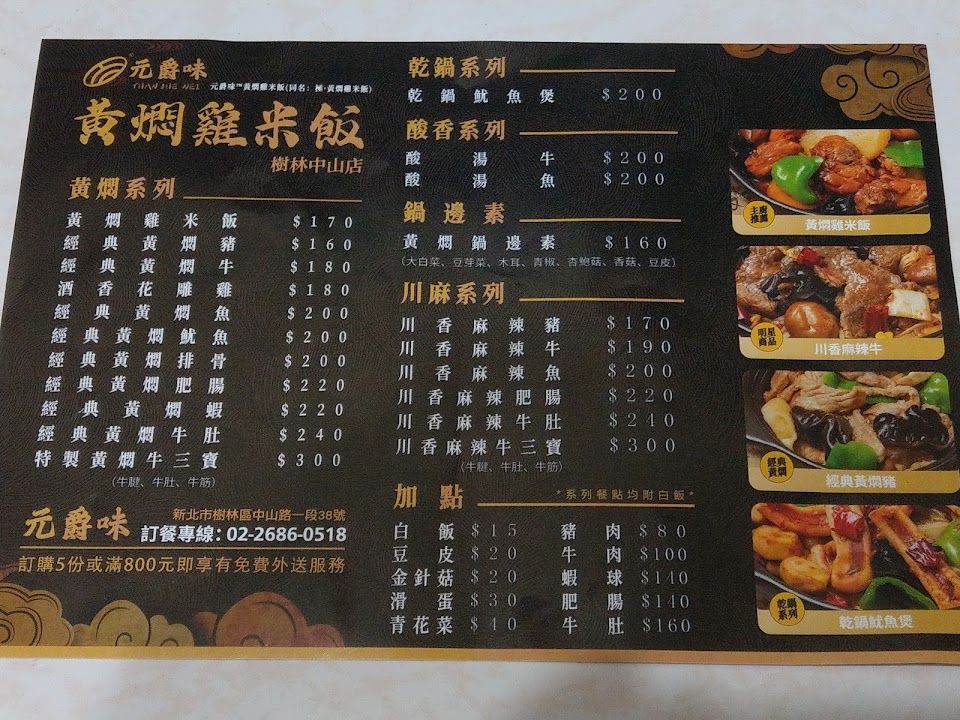 元爵味
YUAN JUE WEI
元爵味™黃燜雞米飯(同名：極·黃燜雞米飯)
黃燜雞米飯
樹林中山店
黃燜系列
黃燜雞米飯 $170
經典黃燜豬 $160
經典黃燜牛 $180
酒香花雕雞 $180
經典黃燜魚 $200
經典黃燜魷魚 $200
經典黃燜排骨 $200
經典黃燜肥腸 $220
經典黃燜蝦 $220
經典黃燜牛肚 $240
特製黃燜牛三寶 $300
(牛腱、牛肚、牛筋)
元爵味
新北市樹林區中山路一段38號
訂餐專線：02-2686-0518
訂購5份或滿800元即享有免費外送服務
乾鍋系列
乾鍋魷魚煲 $200
酸香系列
酸湯牛 $200
酸湯魚 $200
鍋邊素
黃燜鍋邊素 $160
(大白菜、豆芽菜、木耳、青椒、杏鮑菇、香菇、豆皮)
川麻系列
川香麻辣豬 $170
川香麻辣牛 $190
川香麻辣魚 $200
川香麻辣肥腸 $220
川香麻辣牛肚 $240
川香麻辣牛三寶 $300
(牛腱、牛肚、牛筋)
加點
*系列餐點均附白飯*
白飯 $15 豬肉 $80
豆皮 $20 牛肉 $100
金針菇 $20 蝦球 $140
滑蛋 $30 肥腸 $140
青花菜 $40 牛肚 $160
主廚
推薦
黃燜雞米飯
明星
商品
川香麻辣牛
經典
黃燜
經典黃燜豬
乾鍋
系列
乾鍋魷魚煲